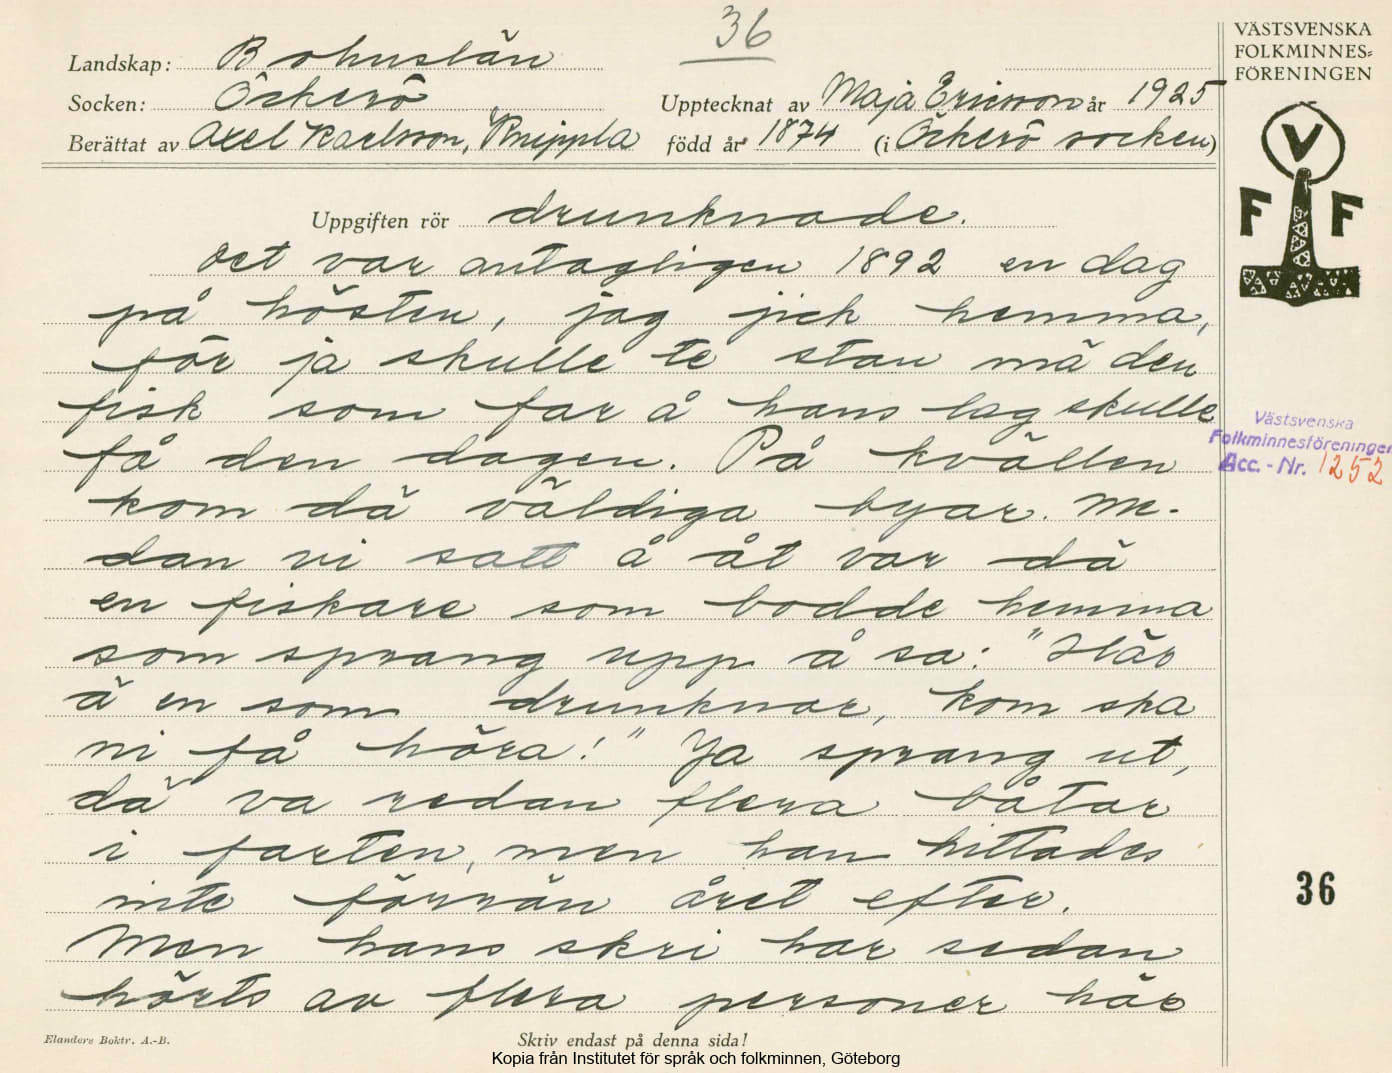 36
Landskap: Bohuslän
Socken: Öckerö
Upptecknat av Maja Ericsson år 1925
Berättat av Axel Karlsson, Knippla
född år 1874 (i Öckerö socken)
VÄSTSVENSKA
FOLKMINNES=
FÖRENINGEN
V
F F
Uppgiften rör drunknade.
Det var antagligen 1892 en dag
på hösten, jag jick hemma,
för ja skulle te stan mä den
fisk som far å hans lag skulle
få den dagen. På kvällen
kom dä väldiga byar. Me-
dan vi satt å åt var dä
en fiskare som bodde hemma
som sprang upp å sa: "Här
ä en som drunknar, kom ska
ni få höra!" Ja sprang ut,
dä va redan flera båtar
i farten, men han hittades
inte förrän året efter.
Men hans skri har sedan
hörts av flera personer här
Västsvenska
Folkminnesföreningen
Acc. - Nr. 1252
36
Elanders Boktr. A.-B.
Skriv endast på denna sida!
Kopia från Institutet för språk och folkminnen, Göteborg